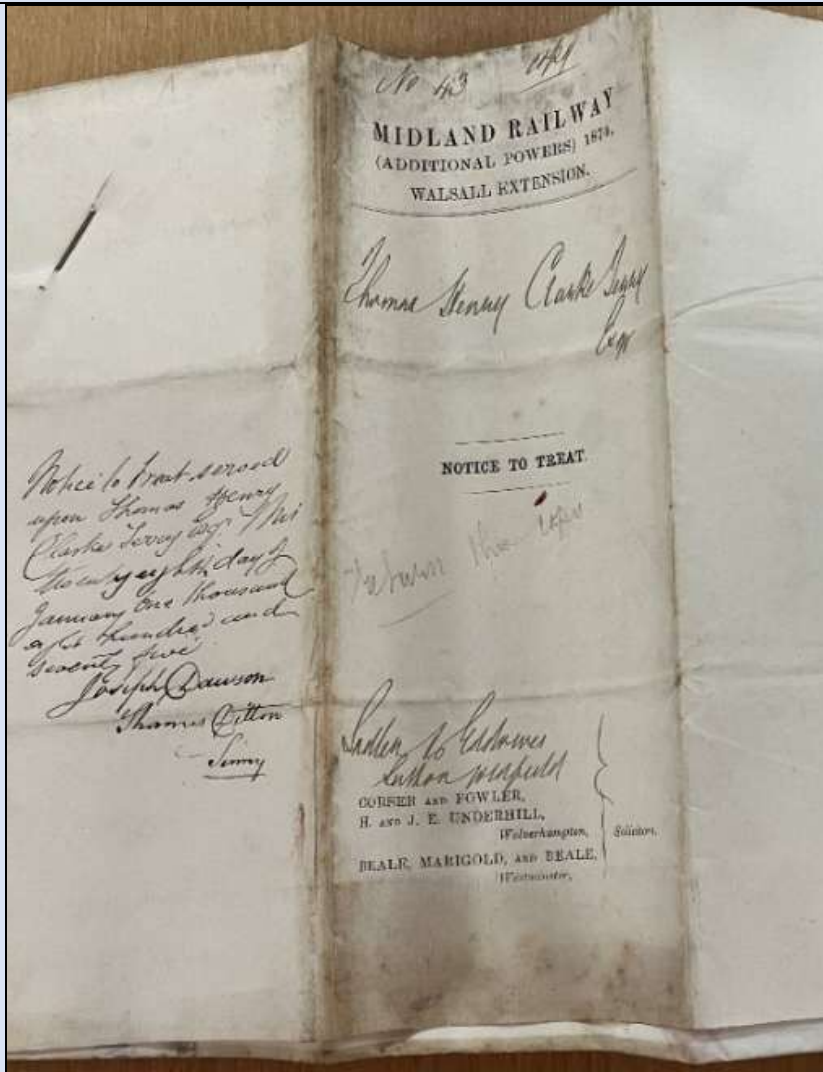 Notice to treat served
upon Thomas Henry
Clarke Terry Esqr. this
twenty eighth day of
January One thousand
eight hundred and
seventy five
Joseph Dawson
Thames Ditton
Surrey
No 43 copy
MIDLAND RAILWAY
(ADDITIONAL POWERS) 1874.
WALSALL EXTENSION.
Thomas Henry Clarke Terry
Esqr
NOTICE TO TREAT
return this copy
Sadler & Eddowes
Sutton Coldfield
CORSER AND FOWLER,
H. AND J. E. UNDERHILL,
Wolverhampton,
Solicitors.
BEALE, MARIGOLD, AND BEALE,
Westminster,